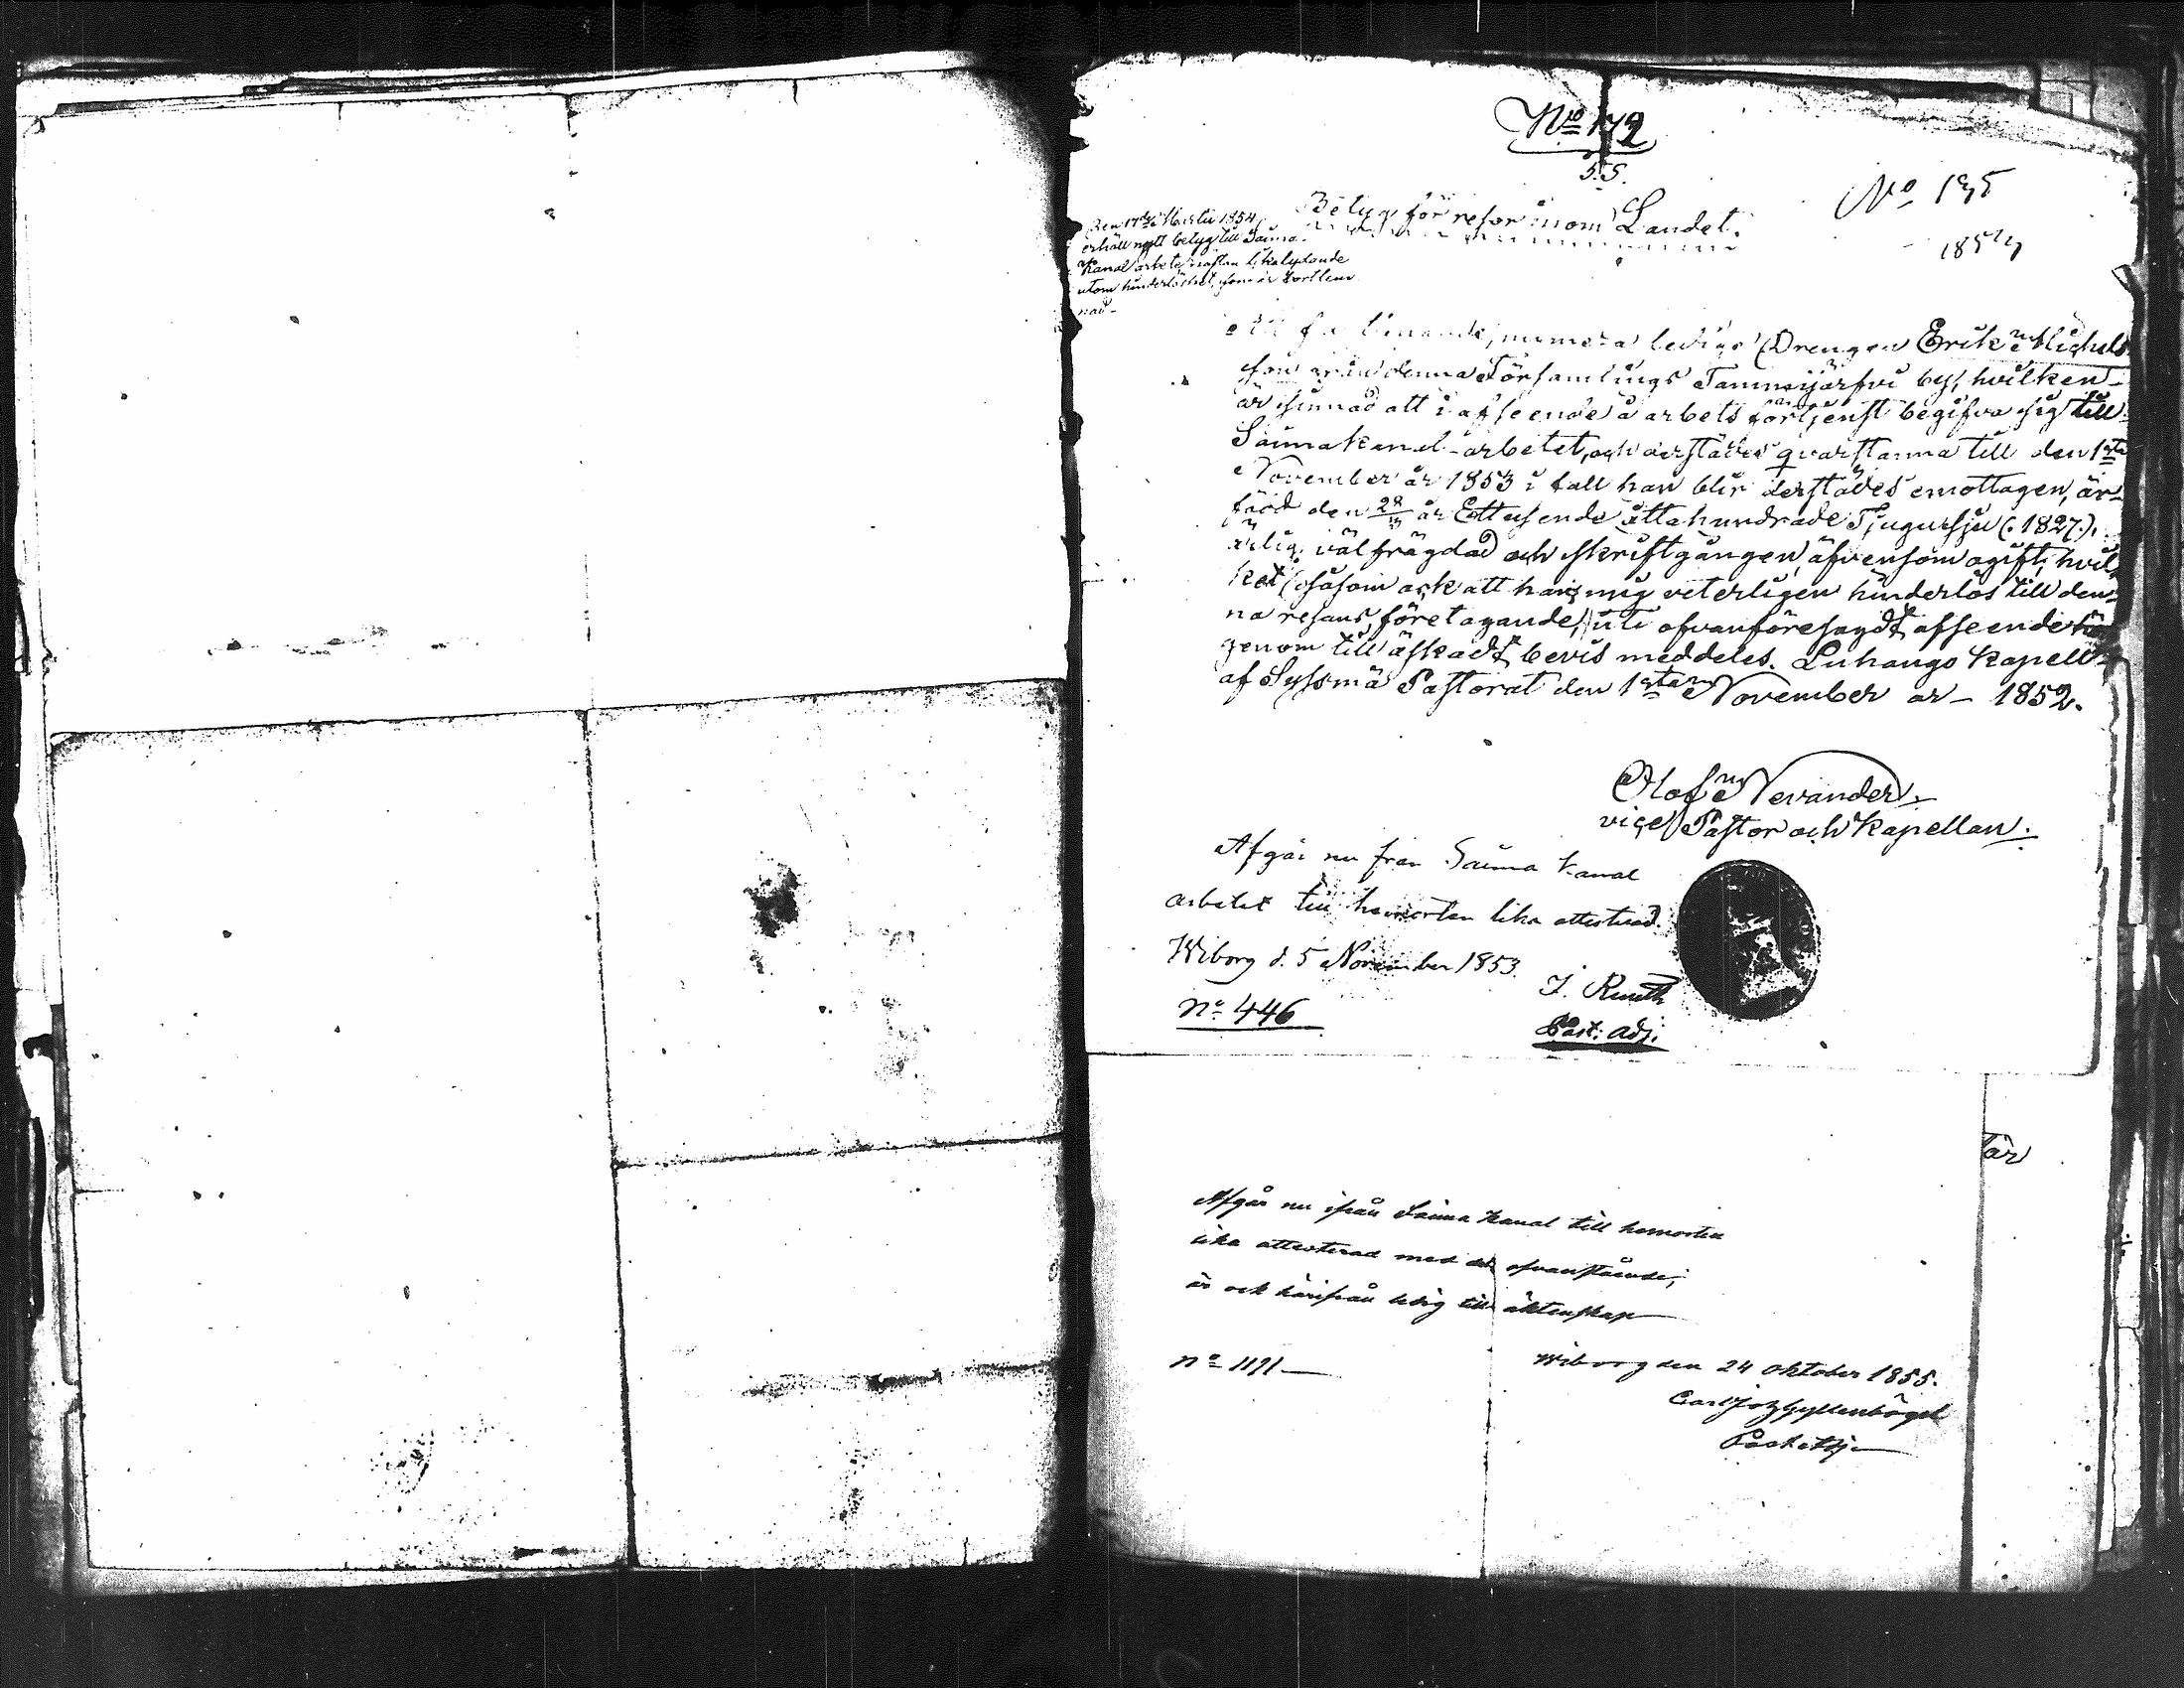 No 172
5.5.
No 195
185
Betyg för resor inom Landet.
Den 17de Martii 1854
erhållit nytt betyg till Saima
Kanal arbete nästan likalydande
utom hinderlöshet, som är bortlem
nad -
numera ledige Drengen Erik Michels
son från denna Församlings Tammijärfvi by, hvilken
är sinnad att i afseende å arbets förtjenst begifva sig till
Saima kanal-arbetet, och derstädes qvarstanna till den 1sta
November år 1853 i fall han blir derstädes emottagen, är
född den 28 år Ettusende åttahundrade Tjugusju (:1827:),
ärlig, välfrägdad och skriftgången, äfvensom ogift, hvil-
ket (såsom ock att han är mig veterligen hinderlös till den-
na resans företagande,) uti ofvanföresagdt afseende här
genom till äskadt bevis meddeles. Luhango Kapell
af Syssmä Pastorat den 1sta November år - 1852.
Olof Nevander
vice Pastor och Kapellan.
Afgår nu från Saima Kanal
arbetet till hemorten lika attesterad.
Wiborg d. 5 November 1853.
J. Ruuth
No 446
Past: adj.
är
Afgår nu ifrån Saima Kanal till hemorten
lika attesterad med det ofvanstående;
är ock härifrån ledig till äktenskap
No 1191
Wiborg den 24 oktober 1855.
Carl Gyllenbögel
Past adj